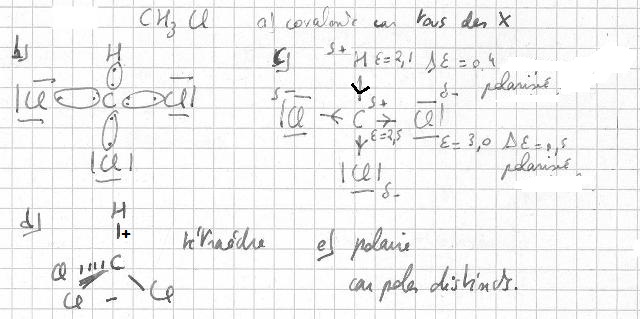 CH3 Cl a) covalente car tous des X
b)
H
|Cl C Cl|
|Cl|
c) δ+ H ε=2,1 Δε=0,4
polarisé.
δ- |Cl ← C δ+ → Cl| δ-
ε=2,5 ε=3,0 Δε=0,5
polarisé.
|Cl| δ-
d)
H
+
Cl C
Cl - Cl
tétraèdre
e) polaire
car poles distincts.